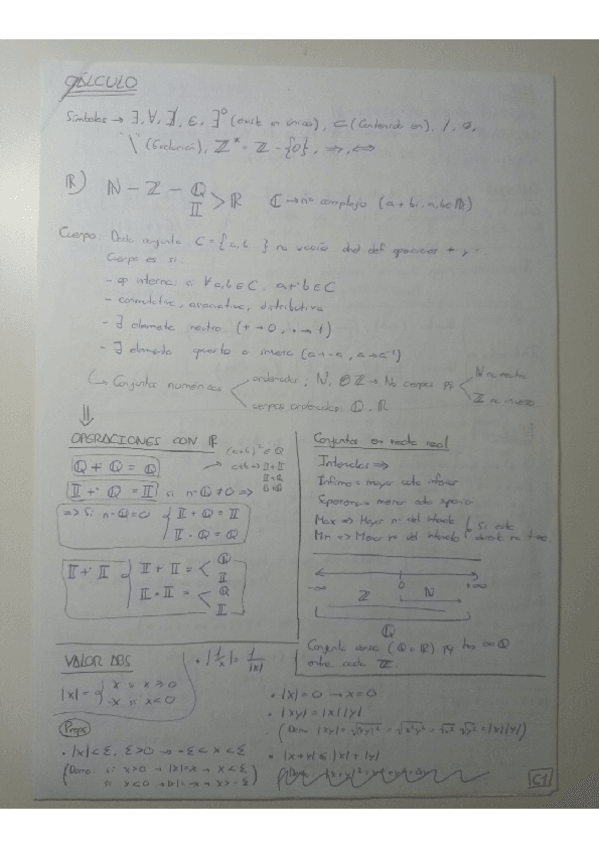 CÁLCULO
Símbolos → ∃, ∀, ∄, ∈, ∃° (existe un único), ⊂ (Contenido en), /, ∅,
"\" (Exclusión), ℤ* = ℤ - {0}, ⇒, ⇔
ℝ) ℕ - ℤ - ℚ
𝕀 > ℝ ℂ → nº complejo (a + bi, a, b ∈ ℝ)
Cuerpo: Dado conjunto C = {a, b...} no vacío def operaciones + y ·
Cuerpo es si:
- op interna: si ∀ a, b ∈ C, a +· b ∈ C
- conmutativa, asociativa, distributiva
- ∃ elemento neutro (+ → 0, · → 1)
- ∃ elemento opuesto o inverso (a → -a, a → a⁻¹)
↳ Conjuntos numéricos
ordenados, ℕ, ℤ → No cuerpos pq
cuerpos ordenados: ℚ, ℝ
⇓
OPERACIONES CON ℝ
ℚ +· ℚ = ℚ
𝕀 +· ℚ = 𝕀 si n-ℚ ≠ 0 ⇒
⇒ Si n-ℚ = 0 { 𝕀 + ℚ = 𝕀
𝕀 · ℚ = ℚ
𝕀 +· 𝕀 { 𝕀 + 𝕀 = < ℚ
𝕀
𝕀 · 𝕀 = < ℚ
𝕀
Conjuntos en recta real
Intervalos ⇒
Ínfimo = mayor cota inferior
Supremo = menor cota superior
Max ⇒ Mayor nº del intervalo
Min ⇒ Menor nº del intervalo
-∞ 0 +∞
ℤ ℕ
ℚ
Conjunto denso (ℚ = ℝ) pq hay ∞ ℚ
entre cada ℤ.
VALOR ABS
|x| = { x si x ≥ 0
-x si x < 0
• |1/x| = 1/|x|
Props
• |x| < ε, ε > 0 → -ε < x < ε
(Demo: si x > 0 → |x| = x → x < ε
si x < 0 → |x| = -x → x > -ε)
• |x| = 0 → x = 0
• |xy| = |x||y|
(Demo: |xy| = √(xy)² = √x²y² = √x² √y² = |x||y|)
• |x+y| ≤ |x| + |y|
C1